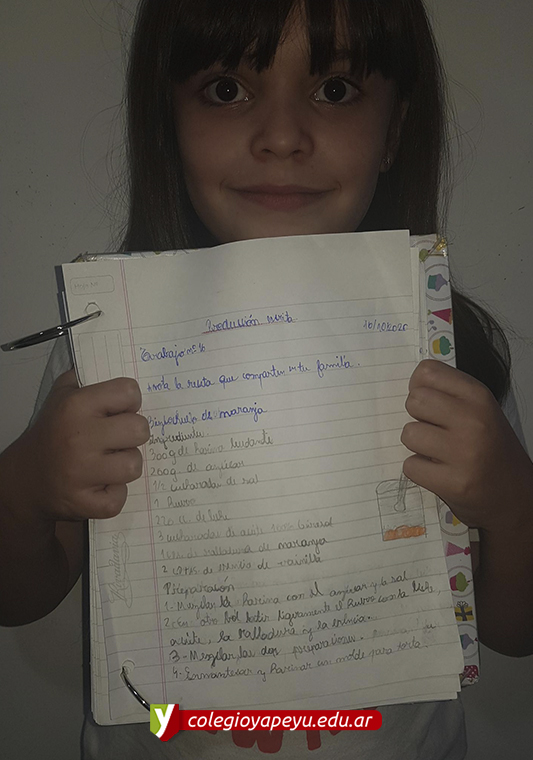 Producción escrita
16/10/2020
Trabajo nº 16
Anota la receta que comparten en tu familia.
Bizcochuelo de naranja
Ingredientes
300g de harina leudante
200g de azúcar
1/2 cucharada de sal
1 huevo
220 cc de leche
3 cucharadas de aceite girasol
1 de ralladura de naranja
2 de esencia de vainilla
Preparación
1- Mezclar la harina con el azúcar y la sal
2- En otro bol batir ligeramente el huevo con la leche,
aceite, la ralladura y la esencia.
3- Mezclar las dos preparaciones.
4- Enmantecar y harinar un molde para torta
Prudencia
y colegioyapeyu.edu.ar